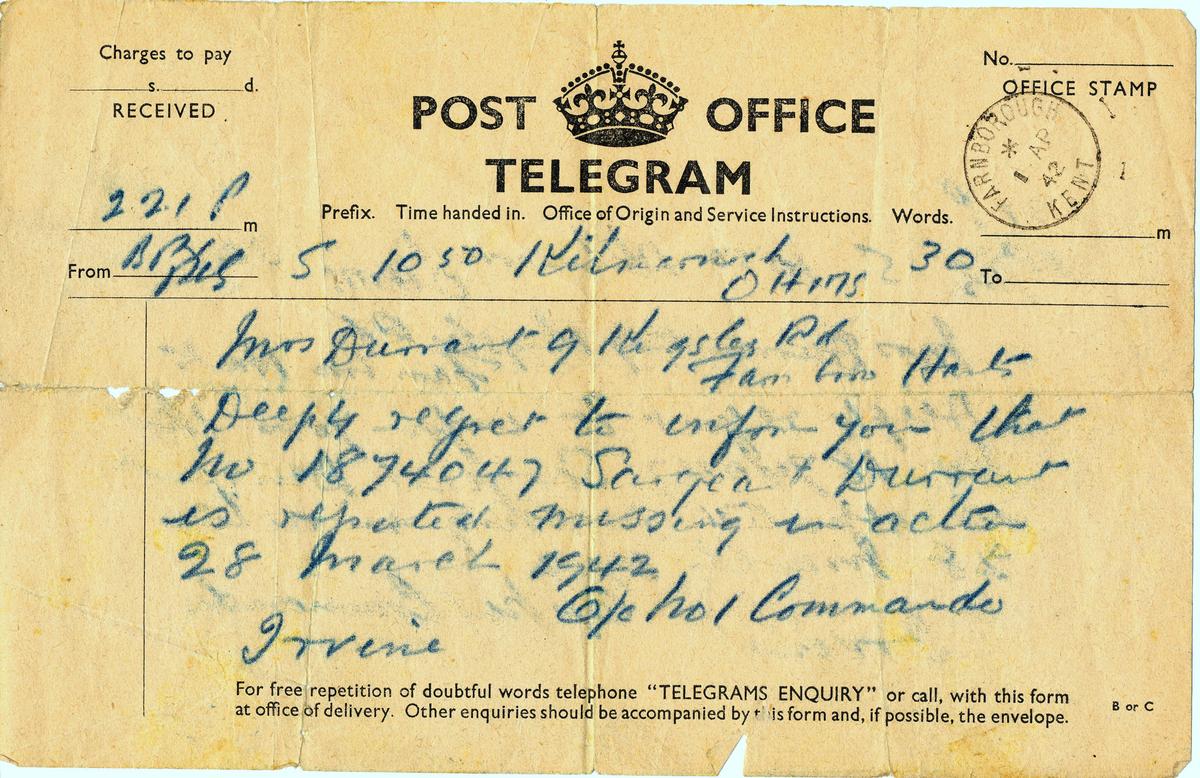 Charges to pay
s. d.
RECEIVED
POST OFFICE
TELEGRAM
No.
OFFICE STAMP
FARNBOROUGH
* 1 AP 42
KENT
Prefix. Time handed in. Office of Origin and Service Instructions. Words.
2.21 P m
m
From
To
S 10 50 Kilmarnock 30
OHMS
Mrs Durrant 9 Kingsley Rd
Farnboro Hants
Deeply regret to inform you that
No 1874047 Sargeant Durrant
is reported missing in action
28 March 1942
O/c No 1 Commando
Irvine
For free repetition of doubtful words telephone "TELEGRAMS ENQUIRY" or call, with this form
at office of delivery. Other enquiries should be accompanied by this form and, if possible, the envelope.
B or C